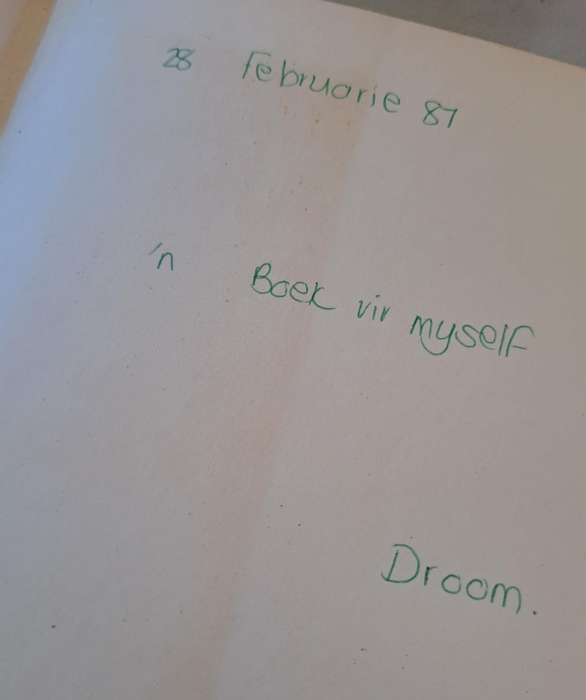 28 Februarie 87
'n Boek vir myself
Droom.